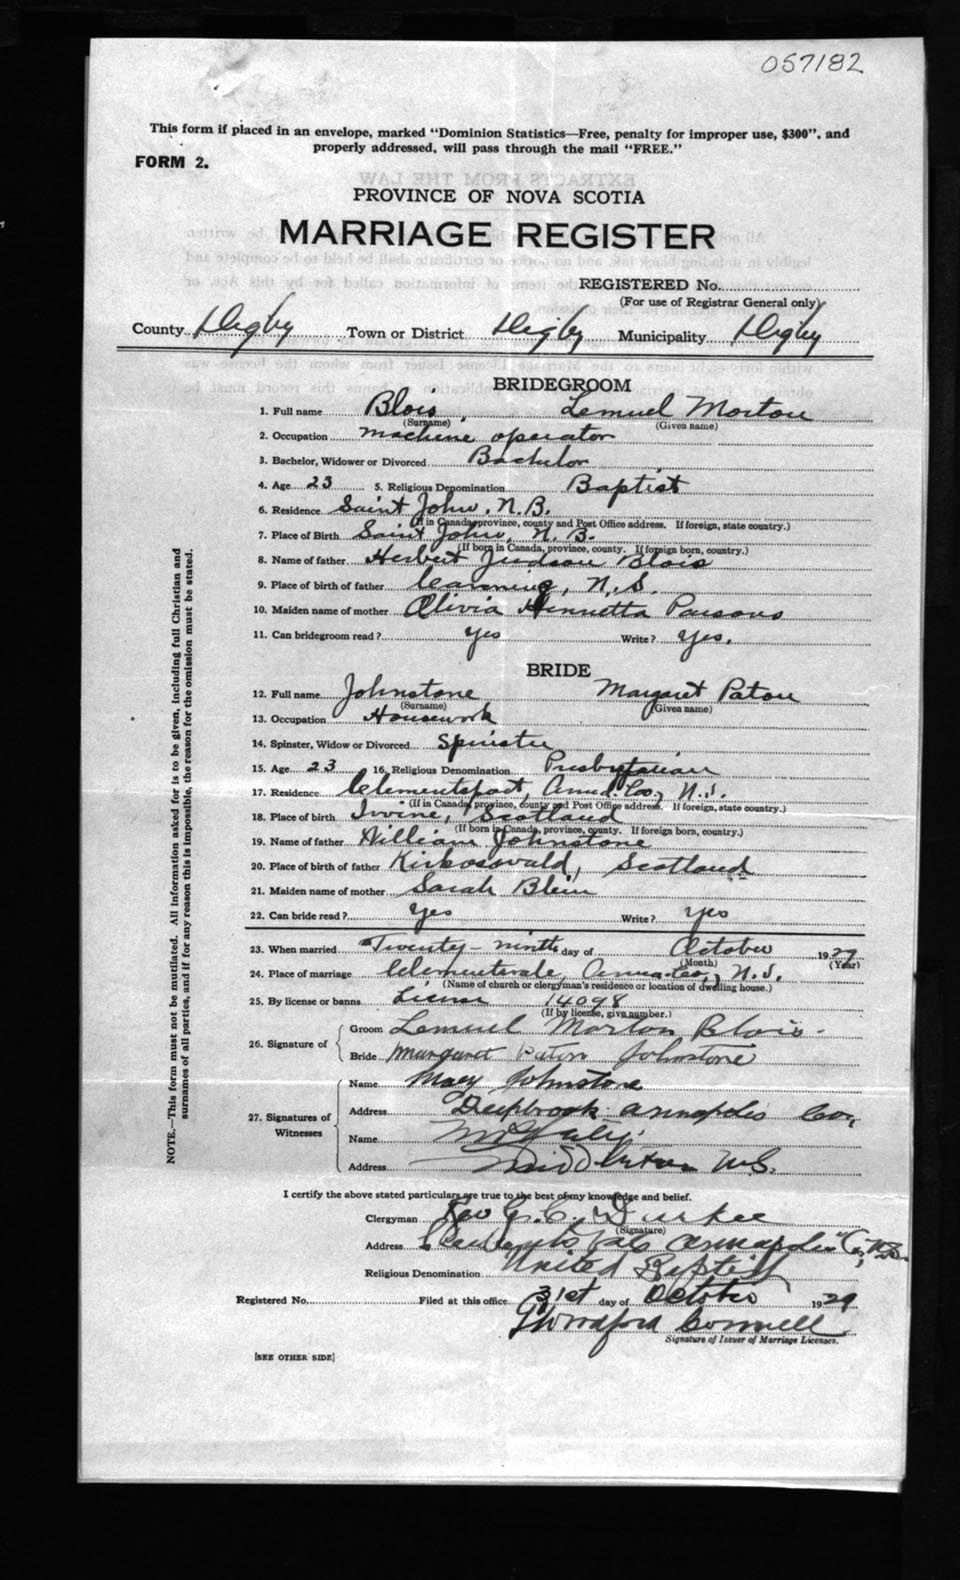 057182
This form if placed in an envelope, marked "Dominion Statistics—Free, penalty for improper use, $300", and
properly addressed, will pass through the mail "FREE."
FORM 2.
PROVINCE OF NOVA SCOTIA
MARRIAGE REGISTER
REGISTERED No.
(For use of Registrar General only)
County Digby Town or District Digby Municipality Digby
BRIDEGROOM
1. Full name Blois, Lemuel Morton
(Surname) (Given name)
2. Occupation machine operator
3. Bachelor, Widower or Divorced Bachelor
4. Age 23 5. Religious Denomination Baptist
6. Residence Saint John, N.B.
(If in Canada, province, county and Post Office address. If foreign, state country.)
7. Place of Birth Saint John, N.B.
(If born in Canada, province, county. If foreign born, country.)
8. Name of father Herbert Judson Blois
9. Place of birth of father Canning, N.S.
10. Maiden name of mother Olivia Henrietta Parsons
11. Can bridegroom read? Yes Write? Yes.
BRIDE
12. Full name Johnstone Margaret Paton
(Surname) (Given name)
13. Occupation Housework
14. Spinster, Widow or Divorced Spinster
15. Age 23 16. Religious Denomination Presbyterian
17. Residence Clementsport, Anna. Co., N.S.
(If in Canada, province, county and Post Office address. If foreign, state country.)
18. Place of birth Irvine, Scotland
(If born in Canada, province, county. If foreign born, country.)
19. Name of father William Johnstone
20. Place of birth of father Kirkoswald, Scotland
21. Maiden name of mother Sarah Blein
22. Can bride read? Yes Write? Yes
23. When married Twenty-ninth day of October 1929
(Month) (Year)
24. Place of marriage Clementsvale, Anna. Co., N.S.
(Name of church or clergyman's residence or location of dwelling house.)
25. By license or banns License 14098
(If by license, give number.)
26. Signature of
Groom Lemuel Morton Blois
Bride Margaret Paton Johnstone
27. Signatures of Witnesses
Name Mary Johnstone
Address Deepbrook Annapolis Co,
Name
Address Middleton N.S.
I certify the above stated particulars are true to the best of my knowledge and belief.
Clergyman Rev G. C. Durkee
(Signature)
Address Clementsvale Annapolis Co, N.S.
Religious Denomination United Baptist
Registered No. Filed at this office 31st day of October 1929
Connell
Signature of Issuer of Marriage Licenses.
[SEE OTHER SIDE]
NOTE.—This form must not be mutilated. All information asked for is to be given, including full Christian and
surnames of all parties, and if for any reason this is impossible, the reason for the omission must be stated.